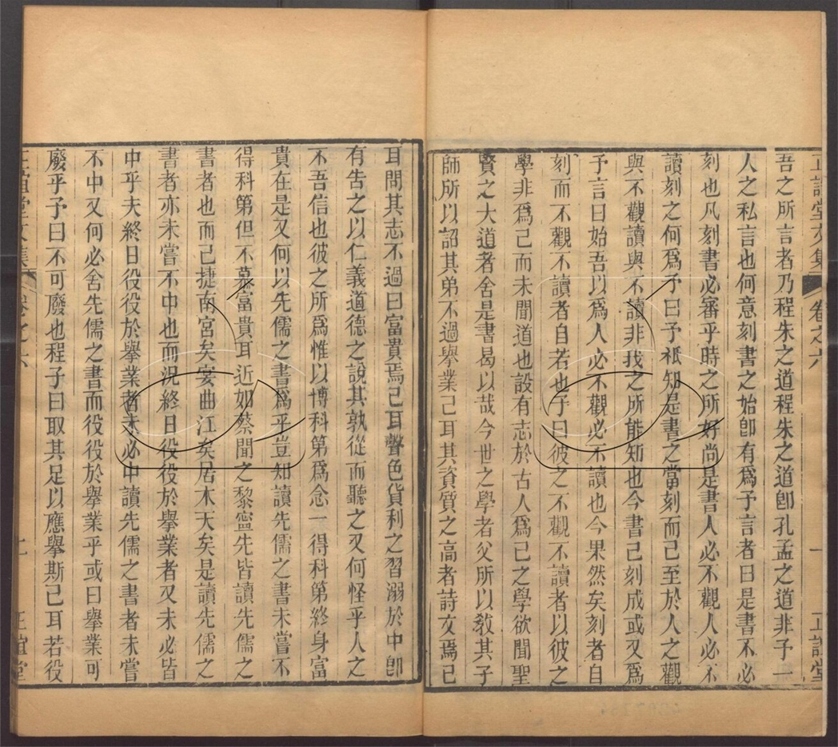 正誼堂文集 卷之六 一 正誼堂
吾之所言者乃程朱之道程朱之道卽孔孟之道非予一
人之私言也何意刻書之始卽有爲予言者曰是書不必
刻也凡刻書必審乎時之所好尚是書人必不觀人必不
讀刻之何爲予曰予祇知是書之當刻而已至於人之觀
與不觀讀與不讀非我之所能知也今書已刻成或又爲
予言曰始吾以爲人必不觀必不讀也今果然矣刻者自
刻而不觀不讀者自若也予曰彼之不觀不讀者以彼之
學非爲己而未聞道也設有志於古人爲己之學欲聞聖
賢之大道者舍是書曷以哉今世之學者父所以敎其子
師所以詔其弟不過擧業已耳其資質之高者詩文焉已
耳問其志不過曰富貴焉已耳聲色貨利之習溺於中卽
有告之以仁義道德之說其孰從而聽之又何怪乎人之
不吾信也彼之所爲惟以博科第爲念一得科第終身富
貴在是又何以先儒之書爲乎豈知讀先儒之書未嘗不
得科第但不慕富貴耳近如蔡聞之黎寧先皆讀先儒之
書者也而已捷南宮矣宴曲江矣居木天矣是讀先儒之
書者亦未嘗不中也而況終日役役於擧業者又未必皆
中乎夫終日役役於擧業者未必中讀先儒之書者未嘗
不中又何必舍先儒之書而役役於擧業乎或曰擧業可
廢乎予曰不可廢也程子曰取其足以應擧斯已耳若役
正誼堂文集 卷之六 七 正誼堂